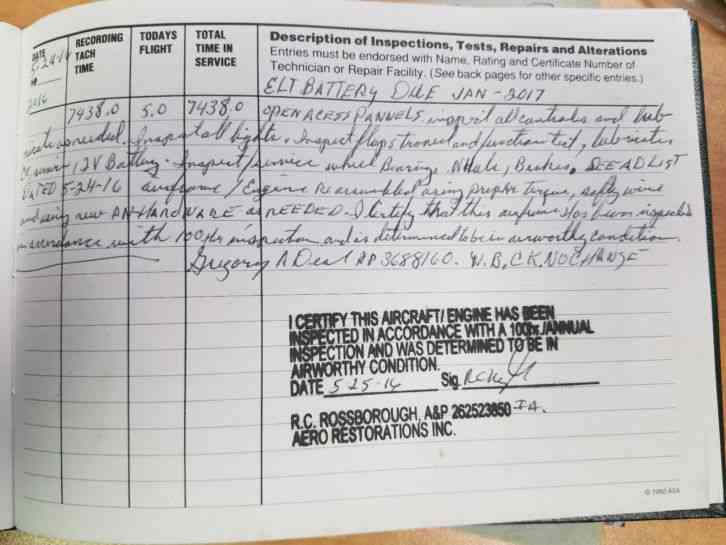 DATE RECORDING TACH TIME TODAYS FLIGHT TOTAL TIME IN SERVICE Description of Inspections, Tests, Repairs and Alterations
Entries must be endorsed with Name, Rating and Certificate Number of
Technician or Repair Facility. (See back pages for other specific entries.)
5-24-16 ELT BATTERY DUE JAN - 2017
2016 7438.0 5.0 7438.0 OPEN ACESS PANNELS, inspect all controls and lub
as needed. Inspect all lights. Inspect flaps and function test, lubricate
12V Battery. Inspect/service wheel Bearings, Wheels, Brakes. SEE AD LIST
DATED 5-24-16 airframe/Engine Reassembled using proper torque, safty wire
and using new AN HARDWARE as NEEDED. I Certify that this airframe has been inspected
in accordance with 100 Hr inspection and is determined to be in airworthy condition.
Gregory A Deal AP 3688160. W.B. CK. NO CHANGE
I CERTIFY THIS AIRCRAFT/ENGINE HAS BEEN
INSPECTED IN ACCORDANCE WITH A 100hr./ANNUAL
INSPECTION AND WAS DETERMINED TO BE IN
AIRWORTHY CONDITION.
DATE 5-25-16 Sig.
R.C. ROSSBOROUGH, A&P 262523850 IA.
AERO RESTORATIONS INC.